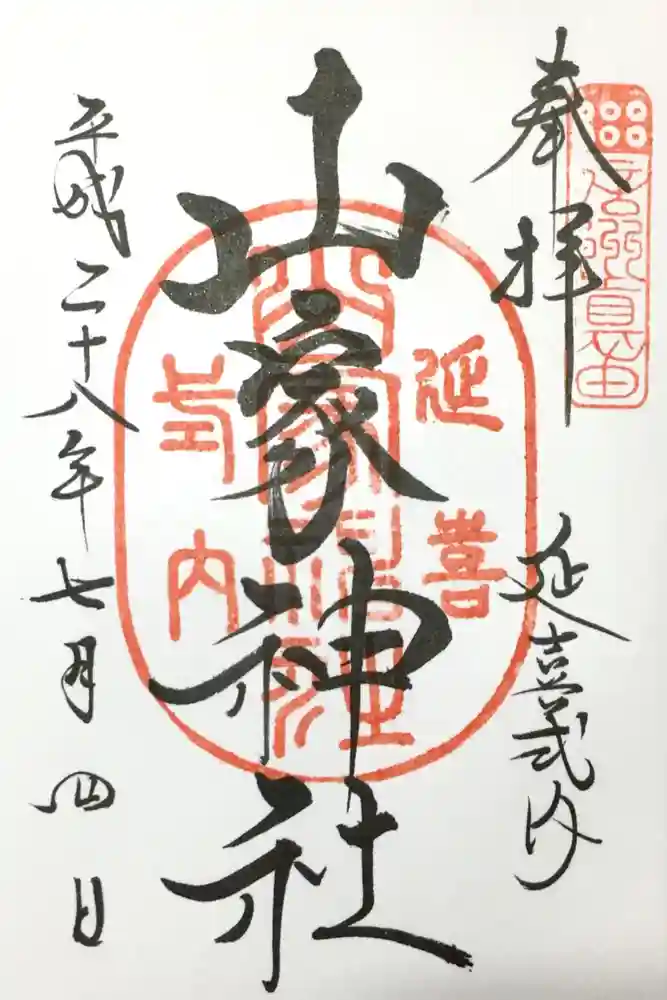 奉拝
信州眞田
延喜式内
山家神社
延喜
山家神社
式内
平成二十八年七月四日